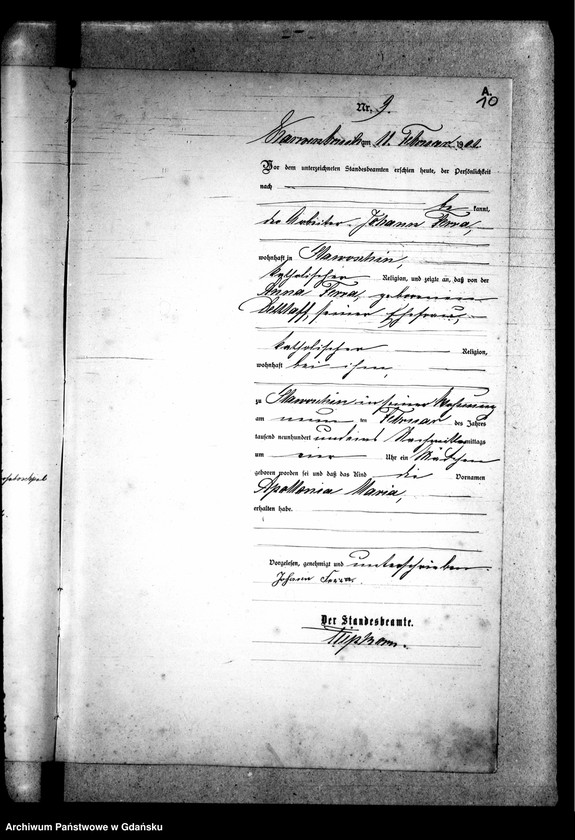 A.
10
Nr. 9.
am 11. Februar 19
Vor dem unterzeichneten Standesbeamten erschien heute, der Persönlichkeit
nach
be kannt,
der Arbeiter Johann
wohnhaft in
katholischer Religion, und zeigte an, daß von der
Anna geborenen
seiner Ehefrau,
katholischer Religion,
wohnhaft bei ihm,
zu in seiner Wohnung
am neun ten Februar des Jahres
tausend neunhundert und eins Nachmittags
um vier Uhr ein Mädchen
geboren worden sei und daß das Kind die Vornamen
Apollonia Maria,
erhalten habe.
Vorgelesen, genehmigt und unterschrieben.
Johann
Der Standesbeamte.
Archiwum Państwowe w Gdańsku